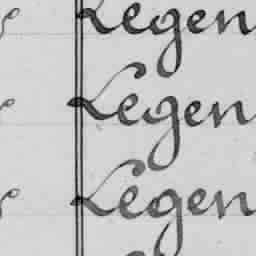 Legen
Legen
Legen